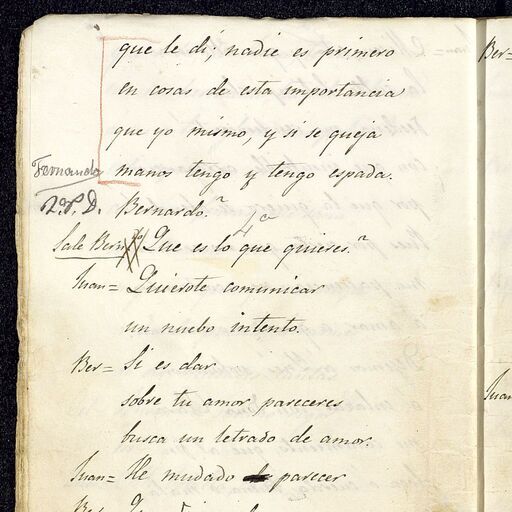 que le dí; nadie es primero
en cosas de esta importancia
que yo mismo, y si se queja
Fernando
manos tengo y tengo espada.
2º P. D. Bernardo.
4ª
Sale Bern.do Que es lo que quieres.
Juan= Quierote comunicar
un nuebo intento.
Ber= Si es dar
sobre tu amor pareceres
busca un letrado de amor.
Juan= He mudado parecer
Ber=
Ber=
Juan